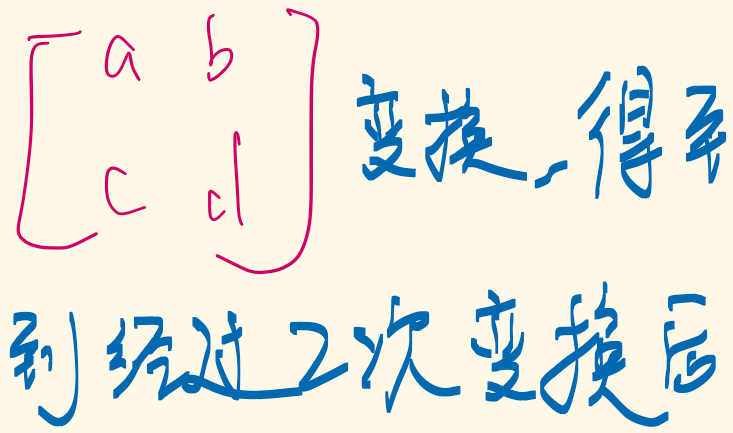 [a b
c d] 变换,得到
到经过2次变换后